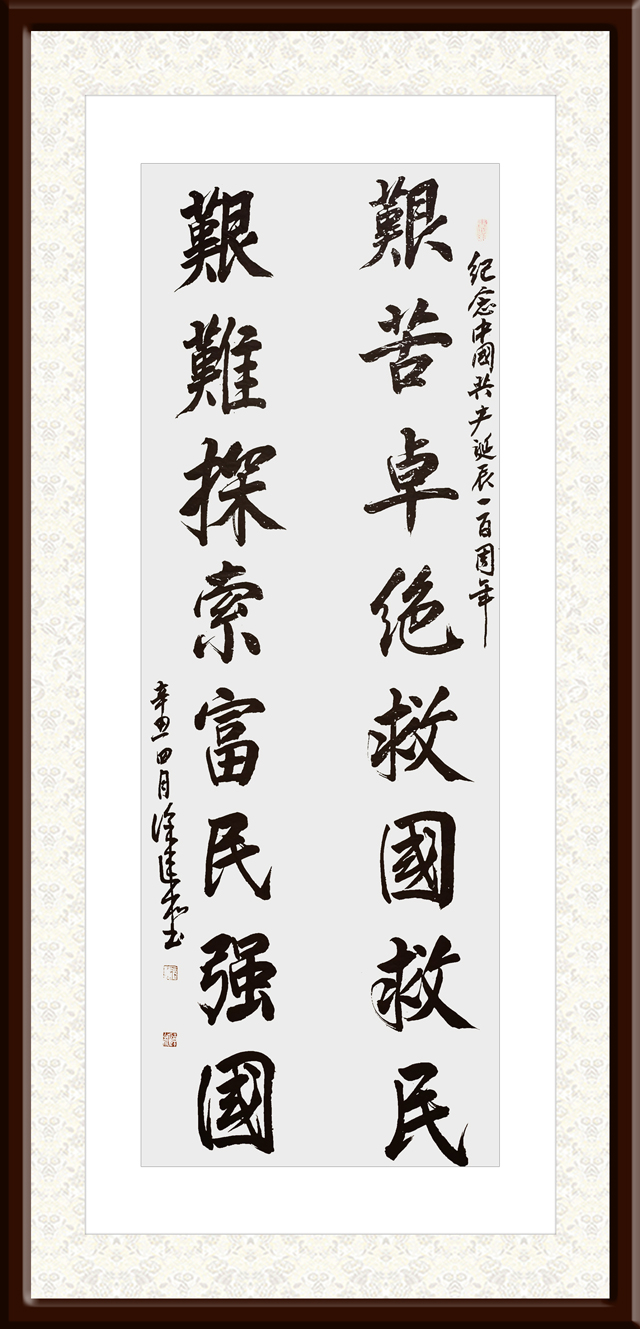 紀念中國共产诞辰一百周年
艱苦卓绝救國救民
艱難探索富民强國
辛丑四月徐建松书